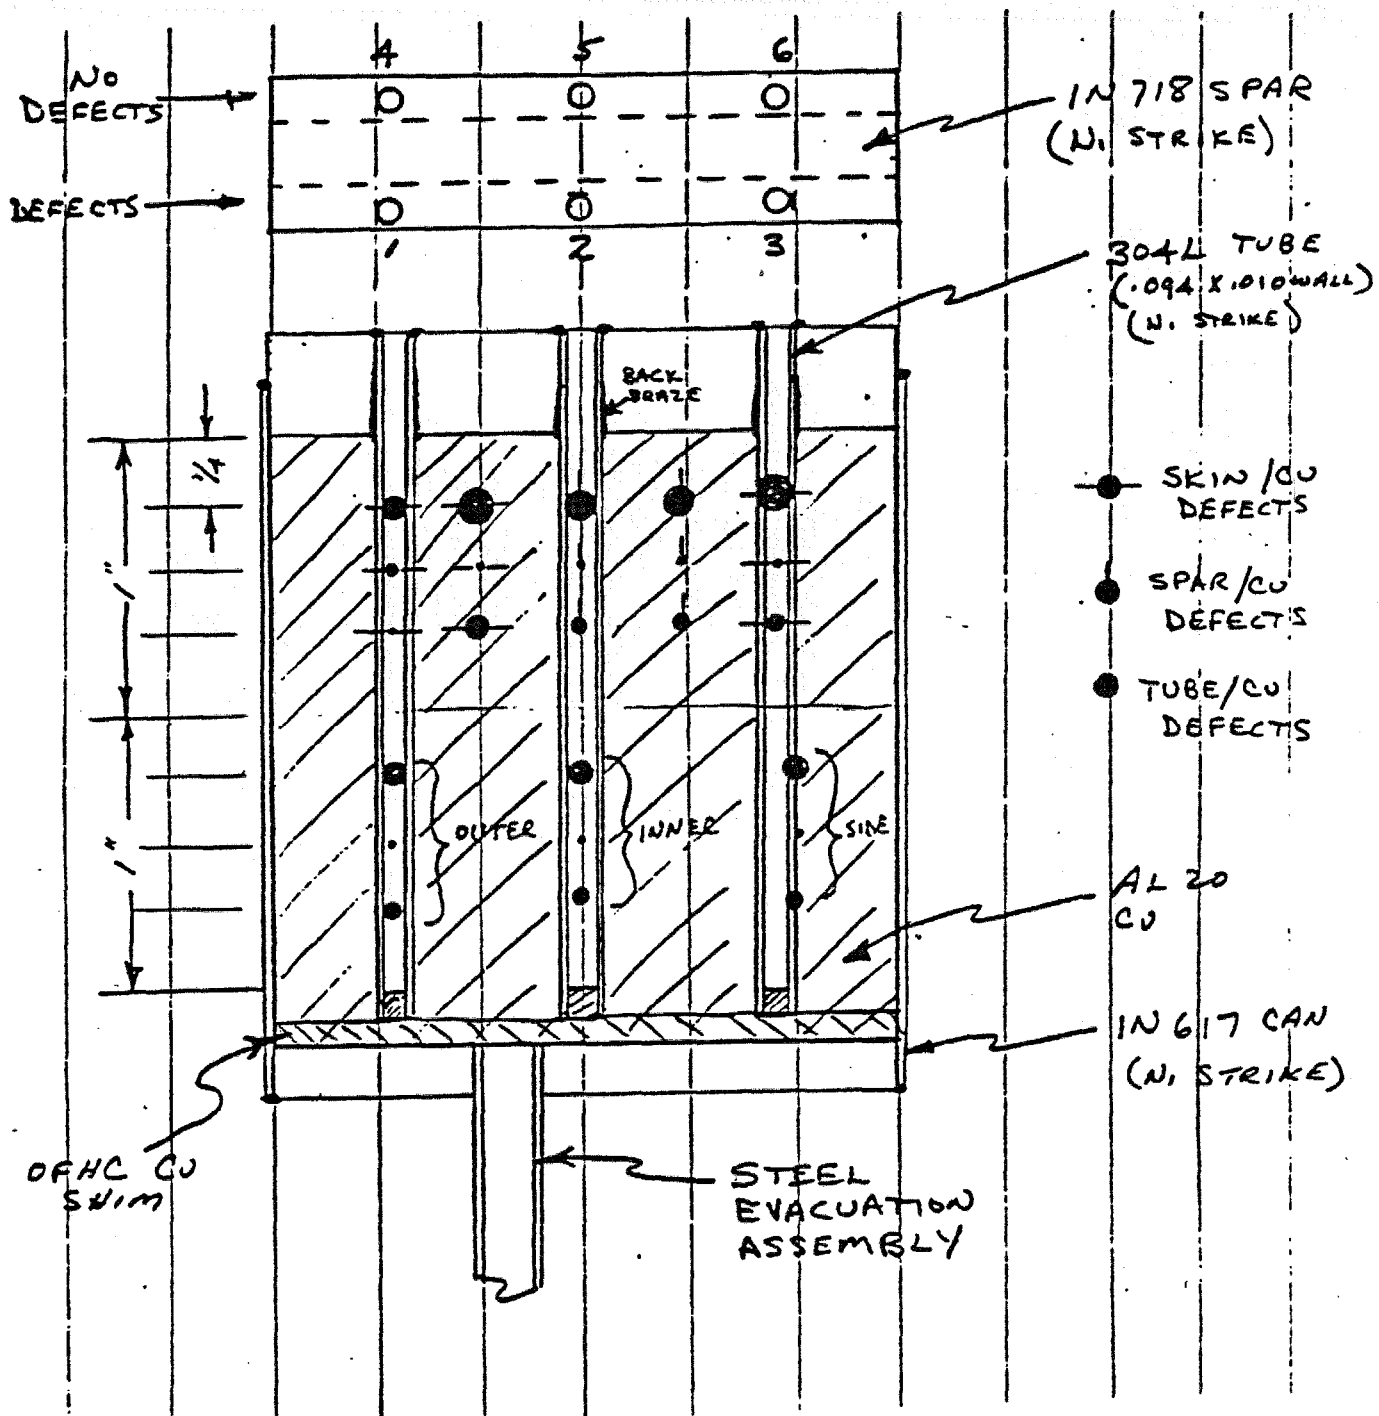 4 5 6
NO
DEFECTS
DEFECTS
1 2 3
IN 718 SPAR
(Ni STRIKE)
304L TUBE
(.094 X .010 WALL)
(Ni STRIKE)
BACK
BRAZE
1/4
1"
1"
SKIN/CU
DEFECTS
SPAR/CU
DEFECTS
TUBE/CU
DEFECTS
OUTER
INNER
SIDE
AL 20
CU
IN 617 CAN
(Ni STRIKE)
OFHC CU
SHIM
STEEL
EVACUATION
ASSEMBLY